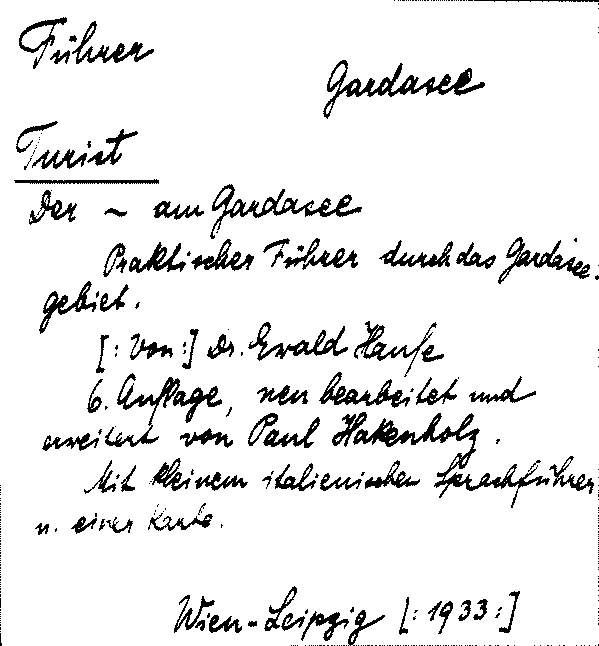 Führer
Gardasee
Turist
Der ~ am Gardasee
Praktischer Führer durch das Gardasee-
gebiet.
[: Von :] Dr. Ewald Haufe
6. Auflage, neu bearbeitet und
erweitert von Paul Hakenholz.
Mit kleinem italienischen Sprachführer
u. einer Karte.
Wien-Leipzig [: 1933 :]